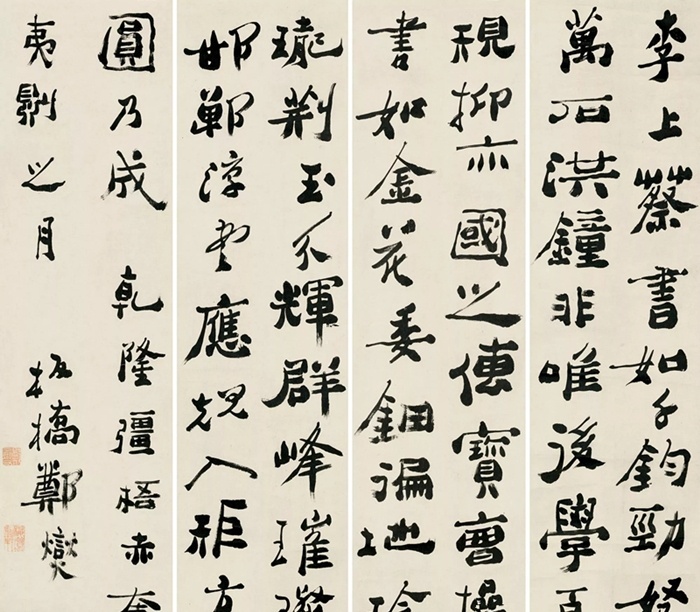 李上蔡書如千鈞勁弩
萬石洪鐘非唯後學
視抑亦國之傳寶曹操
書如金花委鈿遍地玲
瓏荊玉分輝群峰璀璨
邯鄲淳書應規入矩方
圓乃成 乾隆彊梧赤奮
夷則之月
板橋鄭燮